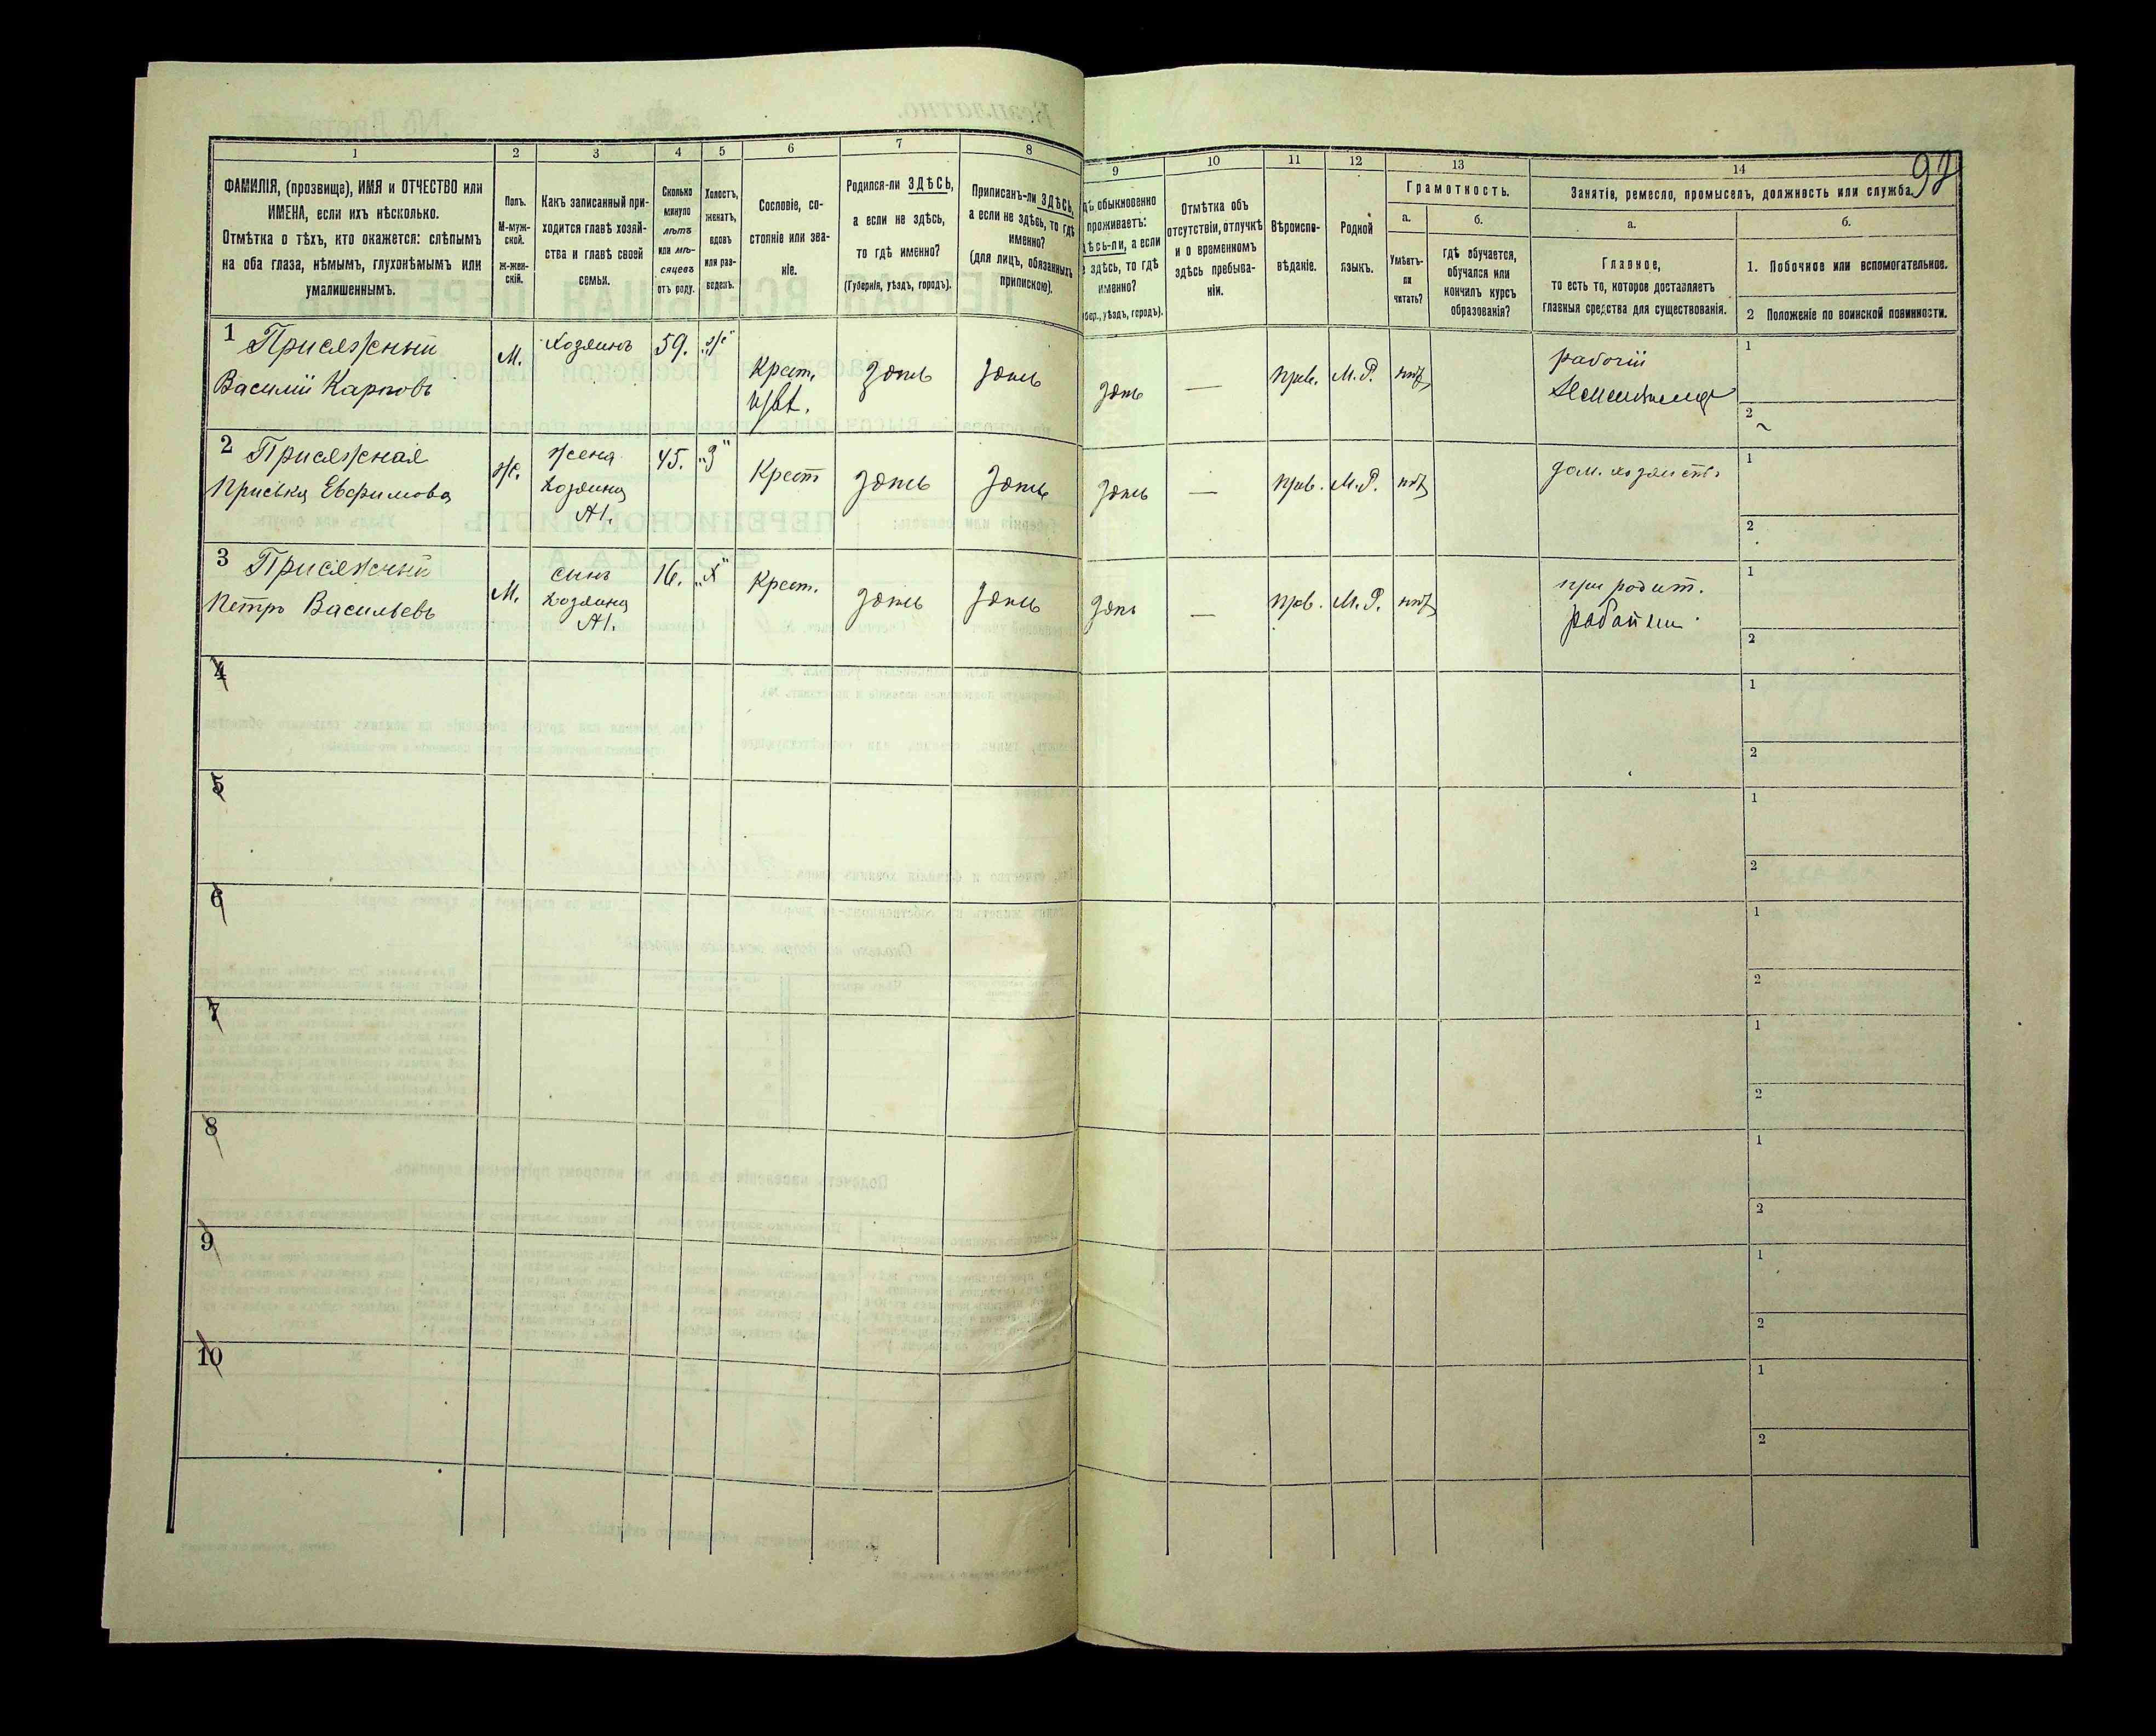 98
1
ФАМИЛІЯ, (прозвище), ИМЯ и ОТЧЕСТВО или
ИМЕНА, если ихъ нѣсколько.
Отмѣтка о тѣхъ, кто окажется: слѣпымъ
на оба глаза, нѣмымъ, глухонѣмымъ или
умалишеннымъ.
2
Полъ.
М-муж-
ской.
ж-жен-
скій.
3
Какъ записанный при-
ходится главѣ хозяй-
ства и главѣ своей
семьи.
4
Сколько
минуло
лѣтъ
или мѣ-
сяцевъ
отъ роду.
5
Холостъ,
женатъ,
вдовъ
или раз-
веденъ.
6
Сословіе, со-
стояніе или зва-
ніе.
7
Родился-ли ЗДѢСЬ,
а если не здѣсь,
то гдѣ именно?
(Губернія, уѣздъ, городъ).
8
Приписанъ-ли ЗДѢСЬ,
а если не здѣсь, то гдѣ
именно?
(для лицъ, обязанныхъ
припискою).
9
дѣ обыкновенно
проживаетъ:
дѣсь-ли, а если
е здѣсь, то гдѣ
именно?
бер., уѣздъ, городъ).
10
Отмѣтка объ
отсутствіи, отлучкѣ
и о временномъ
здѣсь пребыва-
ніи.
11
Вѣроиспо-
вѣданіе.
12
Родной
языкъ.
13
Грамотность.
а.
Умѣетъ-
ли
читать?
б.
гдѣ обучается,
обучался или
кончилъ курсъ
образованія?
14
Занятіе, ремесло, промыселъ, должность или служба.
а.
Главное,
то есть то, которое доставляетъ
главныя средства для существованія.
б.
1. Побочное или вспомогательное.
2 Положеніе по воинской повинности.
1 Присяжный
Василій Карповъ
М.
Хозяинъ
59.
„ж"
Крест.
здѣсь
здѣсь
здѣсь
—
прав.
М. Р.
нѣт
рабочій
1
2
2 Присяжная
Приська Евфимова
ж.
жена
хозяина
№1.
45.
„З"
Крест
здѣсь
здѣсь
здѣсь
—
прав.
М. Р.
нѣт
дом. хозяйств.
1
2
3 Присяжный
Петръ Васильевъ
М.
сынъ
хозяина
№1.
16.
„х"
Крест.
здѣсь
здѣсь
здѣсь
—
прав.
М. Р.
нѣт
при родит.
1
2
4
1
2
5
1
2
6
1
2
7
1
2
8
1
2
9
1
2
10
1
2